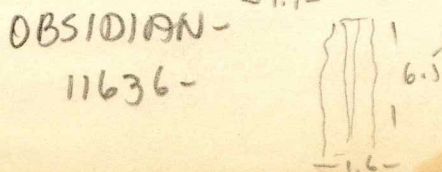 -1.1-
OBSIDIAN-
11636-
6.5
-1.6-